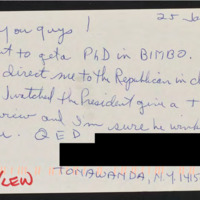 you guys! 25 Ja
t to get a PhD in BIMBO.
direct me to the Republican in c
I watched the President give a T
rview and I'm sure he w
u. Q E D
LEW
TONAWANDA, N.Y. 1415